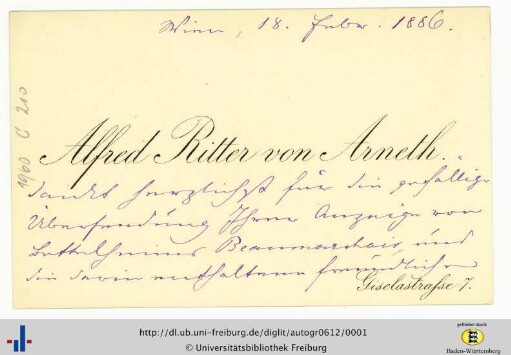 Wien, 18. Febr. 1886.
1960 C 210
Alfred Ritter von Arneth.
dankt herzlichst für die gefällige
Übersendung Ihrer Anzeige von
Bettelheims Beaumarchais, und
die darin enthaltene freundliche
Giselastrasse 7.
http://dl.ub.uni-freiburg.de/diglit/autogr0612/0001
© Universitätsbibliothek Freiburg
gefördert durch
Baden-Württemberg